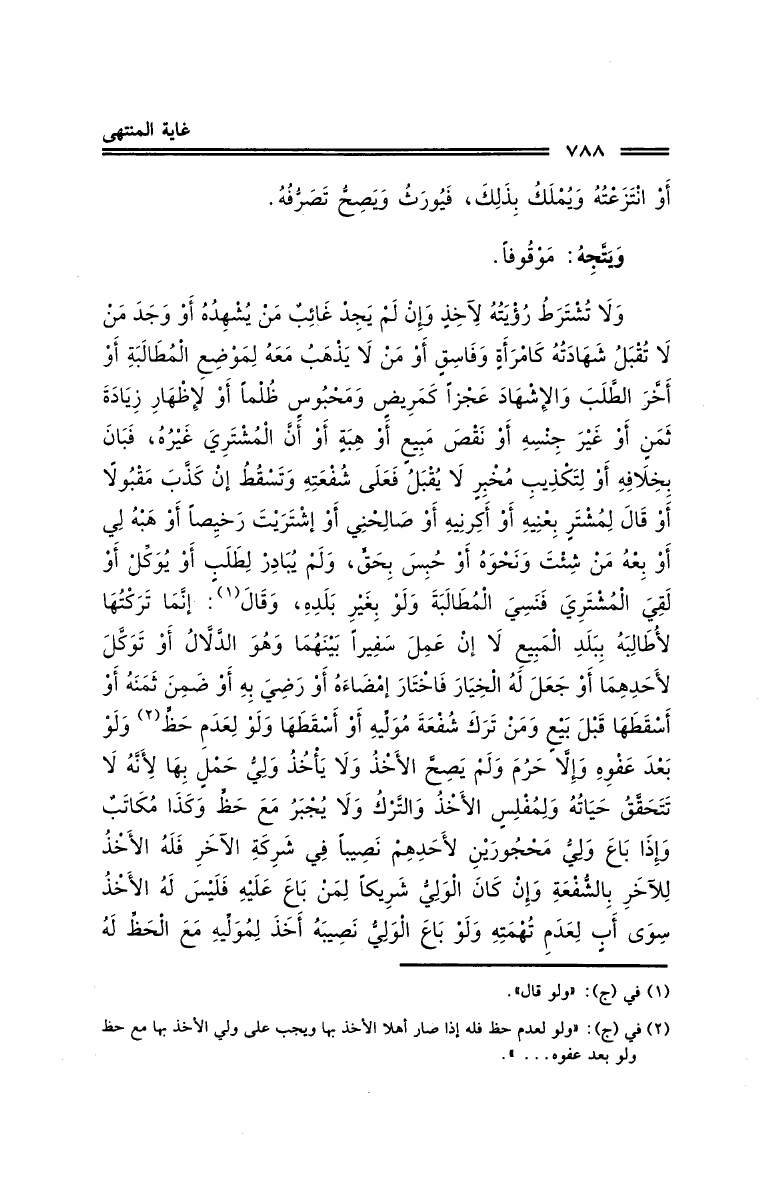 غاية المنتهى
٧٨٨
أَوْ انْتَزَعْتُهُ وَيُمْلَكُ بِذَلِكَ، فَيُورَثُ وَيَصِحُّ تَصَرُّفُهُ.
وَيَتَّجِهُ: مَوْقُوفاً.
وَلَا تُشْتَرَطُ رُؤْيَتُهُ لِآخِذٍ وَإِنْ لَمْ يَجِدْ غَائِبٌ مَنْ يُشْهِدُهُ أَوْ وَجَدَ مَنْ
لَا تُقْبَلُ شَهَادَتُهُ كَامْرَأَةٍ وَفَاسِقٍ أَوْ مَنْ لَا يَذْهَبُ مَعَهُ لِمَوْضِعِ الْمُطَالَبَةِ أَوْ
أَخَّرَ الطَّلَبَ وَالإِشْهَادَ عَجْزاً كَمَرِيضٍ وَمَحْبُوسٍ ظُلْماً أَوْ لإِظْهَارِ زِيَادَةَ
ثَمَنٍ أَوْ غَيْرَ جِنْسِهِ أَوْ نَقْصَ مَبِيعٍ أَوْ هِبَةٍ أَوْ أَنَّ الْمُشْتَرِيَ غَيْرُهُ، فَبَانَ
بِخِلَافِهِ أَوْ لِتَكْذِيبِ مُخْبِرٍ لَا يُقْبَلُ فَعَلَى شُفْعَتِهِ وَتَسْقُطُ إنْ كَذَّبَ مَقْبُولًا
أَوْ قَالَ لِمُشْتَرٍ بِعْنِيهِ أَوْ أَكِرْنِيهِ أَوْ صَالِحْنِي أَوْ إشْتَرَيْتَ رَخِيصاً أَوْ هَبْهُ لِي
أَوْ بِعْهُ مَنْ شِئْتَ وَنَحْوَهُ أَوْ حُبِسَ بِحَقٍّ، وَلَمْ يُبَادِرْ لِطَلَبٍ أَوْ يُوَكِّلْ أَوْ
لَقِيَ الْمُشْتَرِيَ فَنَسِيَ الْمُطَالَبَةَ وَلَوْ بِغَيْرِ بَلَدِهِ، وَقَالَ(١): إنَّمَا تَرَكْتُهَا
لأُطَالِبَهُ بِبَلَدِ الْمَبِيعِ لَا إنْ عَمِلَ سَفِيراً بَيْنَهُمَا وَهُوَ الدَّلَّالُ أَوْ تَوَكَّلَ
لأَحَدِهِمَا أَوْ جَعَلَ لَهُ الْخِيَارَ فَاخْتَارَ إمْضَاءَهُ أَوْ رَضِيَ بِهِ أَوْ ضَمِنَ ثَمَنَهُ أَوْ
أَسْقَطَهَا قَبْلَ بَيْعٍ وَمَنْ تَرَكَ شُفْعَةَ مُوَلِّيهِ أَوْ أَسْقَطَهَا وَلَوْ لِعَدَمِ حَظٍّ(٢) وَلَوْ
بَعْدَ عَفْوِهِ وَإِلَّا حَرُمَ وَلَمْ يَصِحَّ الأَخْذُ وَلَا يَأْخُذُ وَلِيُّ حَمْلٍ بِهَا لِأَنَّهُ لَا
تَتَحَقَّقُ حَيَاتُهُ وَلِمُفْلِسٍ الأَخْذُ وَالتَّرْكُ وَلَا يُجْبَرُ مَعَ حَظٍّ وَكَذَا مُكَاتَبٌ
وَإِذَا بَاعَ وَلِيُّ مَحْجُورَيْنِ لأَحَدِهِمْ نَصِيباً فِي شَرِكَةِ الآخَرِ فَلَهُ الأَخْذُ
لِلآخَرِ بِالشُّفْعَةِ وَإِنْ كَانَ الْوَلِيُّ شَرِيكاً لِمَنْ بَاعَ عَلَيْهِ فَلَيْسَ لَهُ الأَخْذُ
سِوَى أَبٍ لِعَدَمِ تُهْمَتِهِ وَلَوْ بَاعَ الْوَلِيُّ نَصِيبَهُ أَخَذَ لِمُوَلِّيهِ مَعَ الْحَظِّ لَهُ
(١) في (ج): «ولو قال».
(٢) في (ج): «ولو لعدم حظ فله إذا صار أهلا الأخذ بها ويجب على ولي الأخذ بها مع حظ
ولو بعد عفوه...».